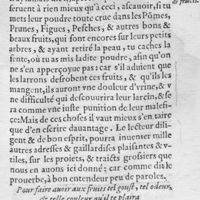 seruent à rien mieux qu'à ceci, à sçauoir, si tu
mets leur poudre toute cruë dans les Põmes,
Prunes, Figues, Pesches, & autres bons &
beaux fruits, qui sont encores sur leurs petits
arbres, & ayant retiré la peau, tu caches la
fente, où tu as mis ladite poudre, afin qu'on
ne s'en apperçoyue pas : car s'il aduient que
les larrons desrobent ces fruits, & qu'ils les
mangent, ils auront vne douleur d'vrine, & v-
ne difficulté qui descouurira leur larcin, & se-
ra comme vne iuste punition de leur malefi-
ce: Mais de ces choses il vaut mieux s'en taire
que d'en escrire dauantage. Le lecteur dili-
gent & de bon esprit, pourra inuenter mille
autres adresses & gaillardises plaisantes & v-
tiles, sur les proiets, & traicts grossiers que
nous en auons ici donné; car comme dit le
prouerbe, à bon entendeur peu de paroles.
Pour faire auoir aux fruits tel goust, tel odeur,
& telle couleur qu'il te plaira